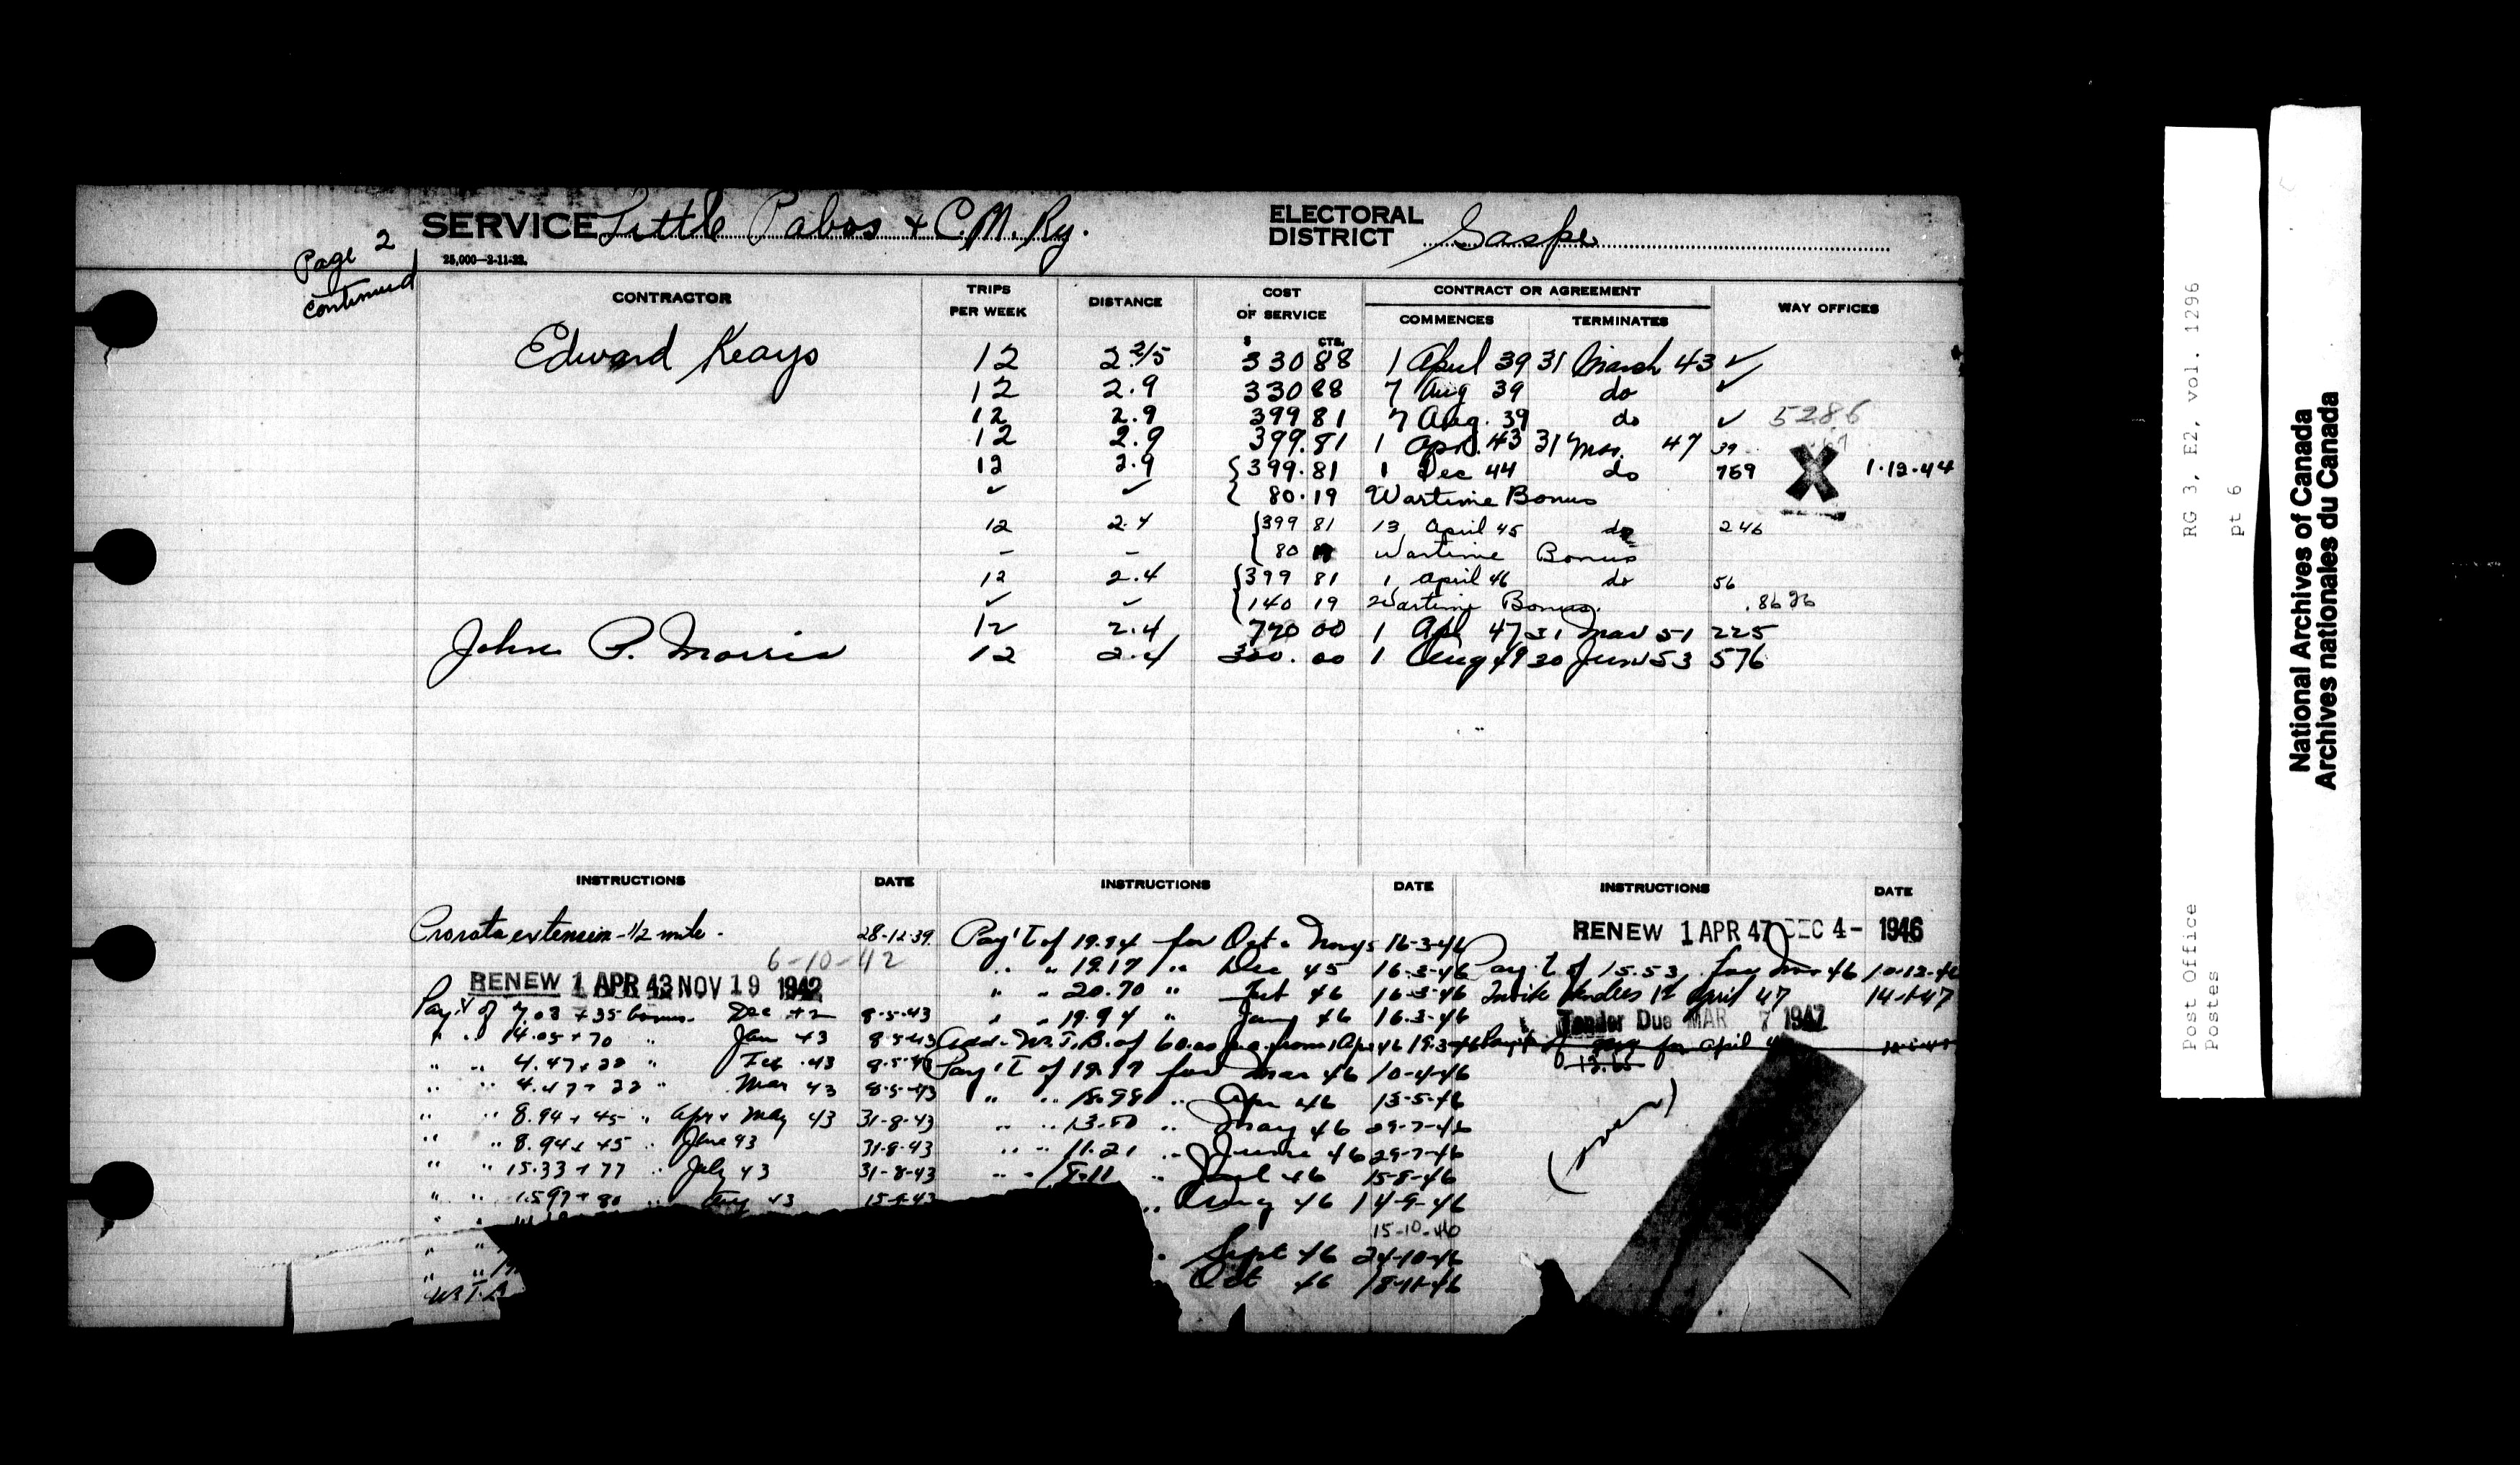 SERVICE Little Pabos & C.N. Ry.
ELECTORAL DISTRICT Gaspe
Page 2 continued
25,000—2-11-22.
CONTRACTOR TRIPS PER WEEK DISTANCE COST OF SERVICE CONTRACT OR AGREEMENT WAY OFFICES
COMMENCES TERMINATES
$ CTS.
Edward Keays 12 2 2/5 330 88 1 April 39 31 March 43 ✓
12 2.9 330 88 7 Aug 39 do ✓
12 2.9 399 81 7 Aug. 39 do ✓ 5286
12 2.9 399.81 1 April 43 31 Mar. 47 39
12 2.9 { 399.81 1 Dec 44 do 759 X 1-12-44
✓ ✓ { 80.19 Wartime Bonus
12 2.4 { 399 81 13 April 45 do 246
– – { 80 19 Wartime Bonus
12 2.4 { 399 81 1 April 46 do 56
✓ ✓ { 140 19 Wartime Bonus. .8626
12 2.4 720 00 1 Apl 47 31 Mar 51 225
John P. Morris 12 2.4 300.00 1 Aug 49 30 Jun 53 576
INSTRUCTIONS DATE
Prorata extension 1/2 mile. 28-12-39
6-10-42
RENEW 1 APR 43 NOV 19 1942
Pay't of 7.03 + 35 bonus. Dec 42 8-5-43
" " 14.05 + 70 " Jan 43 8-5-43
" " 4.47 + 22 " Feb 43 8-5-43
" " 4.47 + 22 " Mar 43 8-5-43
" " 8.94 + 45 " Apr & May 43 31-8-43
" " 8.94 + 45 " June 43 31-8-43
" " 15.33 + 77 " July 43 31-8-43
" " 15.97 + 80 " Aug 43
" "
" "
W.T.B
INSTRUCTIONS DATE
Pay't of 19.94 for Oct & Nov 45 16-3-46
" " 19.17 " Dec 45 16-3-46
" " 20.70 " Feb 46 16-3-46
" " 19.94 " Jany 46 16-3-46
Add. W.T.B. of 60.00 p.a. from 1 Apr 46 19-3-46
Pay't of 19.17 for Mar 46 10-4-46
" " 18.98 " Apr 46 13-5-46
" " 13.80 " May 46 29-7-46
" " 11.21 " June 46 29-7-46
" " " Jul 46 15-8-46
" Aug 46 14-9-46
15-10-40
" Sept 46 24-10-46
Oct 46 18-11-46
INSTRUCTIONS DATE
RENEW 1 APR 47 DEC 4 - 1946
Pay't of 15.53 for Nov 46 10-12-46
Invite tenders 1st April 47 14-1-47
Tender Due MAR 7 1947
for April
(over)
RG 3, E2, vol. 1296
pt 6
Post Office
Postes
National Archives of Canada
Archives nationales du Canada